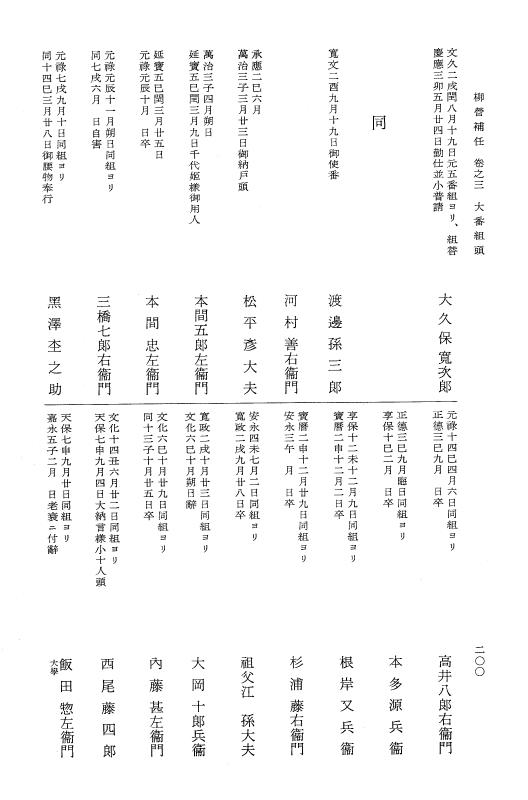 柳營補任　卷之三　大番組頭
二〇〇
文久二戌閏八月十九日元五番組ヨリ、組替
慶應三卯五月廿四日勤仕並小普請
大久保寬次郎
同
寬文二酉九月十九日御使番
渡邊孫三郎
河村善右衞門
承應二巳六月
萬治三子三月廿三日御納戸頭
松平彥大夫
萬治三子四月朔日
延寶五巳閏三月九日千代姬樣御用人
本間五郎左衞門
延寶五巳閏三月廿五日
元祿元辰十月　日卒
本間忠左衞門
元祿元辰十一月朔日同組ヨリ
同七戌六月　日自害
三橋七郎右衞門
元祿七戌九月十日同組ヨリ
同十四巳三月廿八日御腰物奉行
黑澤杢之助
元祿十四巳四月六日同組ヨリ
正德三巳九月　日卒
高井八郎右衞門
正德三巳九月晦日同組ヨリ
享保十巳二月　日卒
本多源兵衞
享保十二未十二月九日同組ヨリ
寶曆二申十二月二日卒
根岸又兵衞
寶曆二申十二月廿九日同組ヨリ
安永三午　月　日卒
杉浦藤右衞門
安永四未七月二日同組ヨリ
寬政二戌九月廿八日卒
祖父江孫大夫
寬政二戌十月廿三日同組ヨリ
文化六巳十月朔日辭
大岡十郎兵衞
文化六巳十月廿九日同組ヨリ
同十三子十月廿五日卒
內藤甚左衞門
文化十四丑六月廿二日同組ヨリ
天保七申九月四日大納言樣小十人頭
西尾藤四郎
天保七申九月廿日同組ヨリ
嘉永五子二月　日老衰ニ付辭
大學
飯田惣左衞門